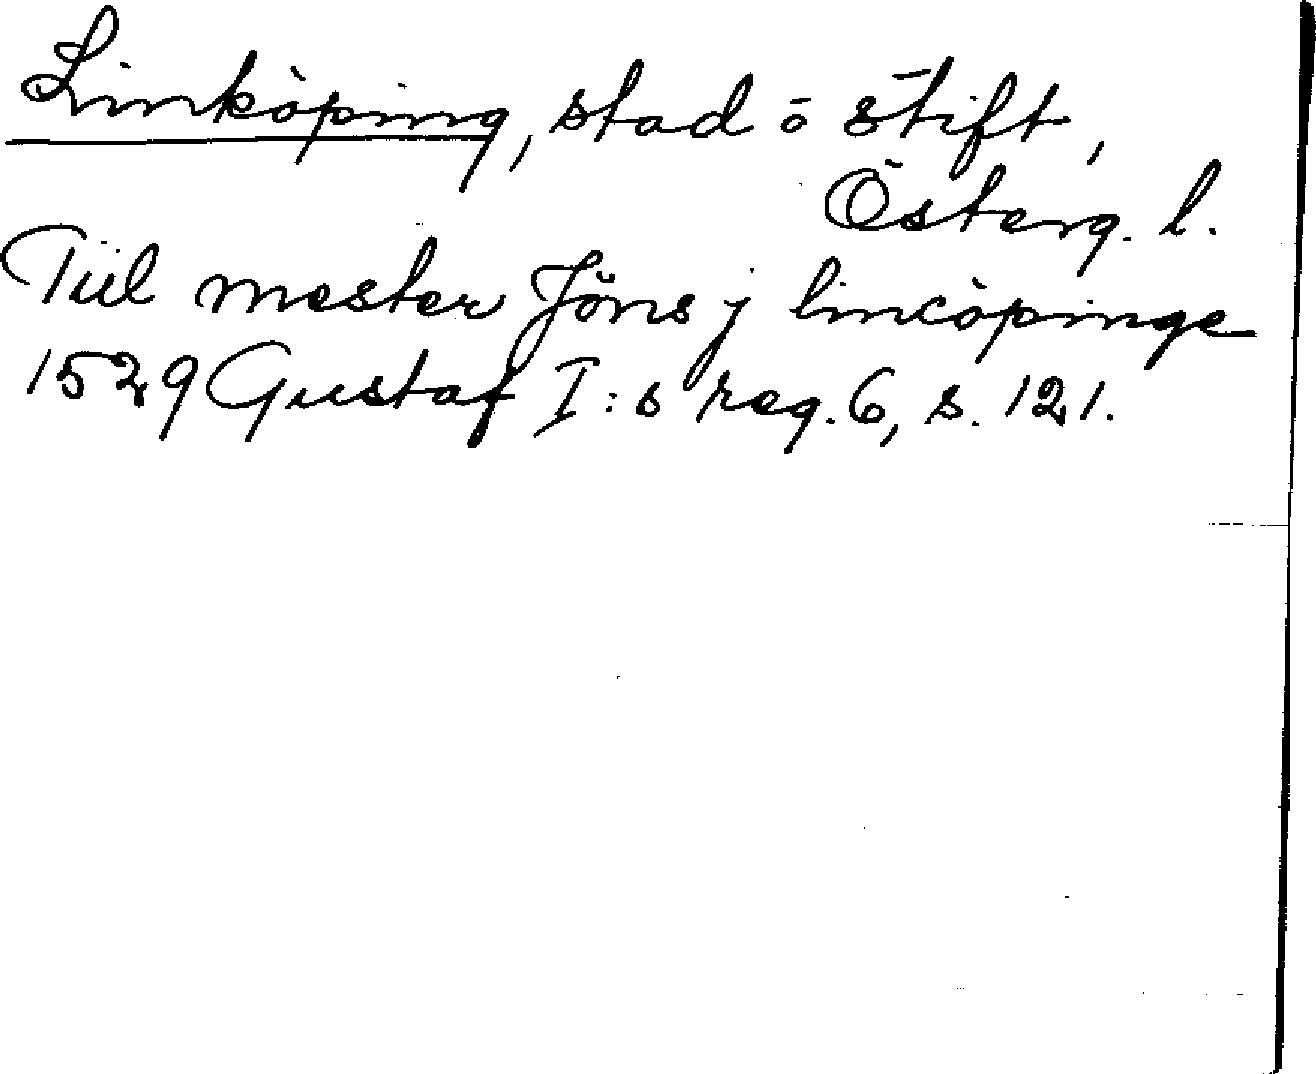 Linköping, stad o stift,
Österg. l.
Tiil mester Jöns j lincöpinge
1529 Gustaf I:s reg. 6, s. 121.